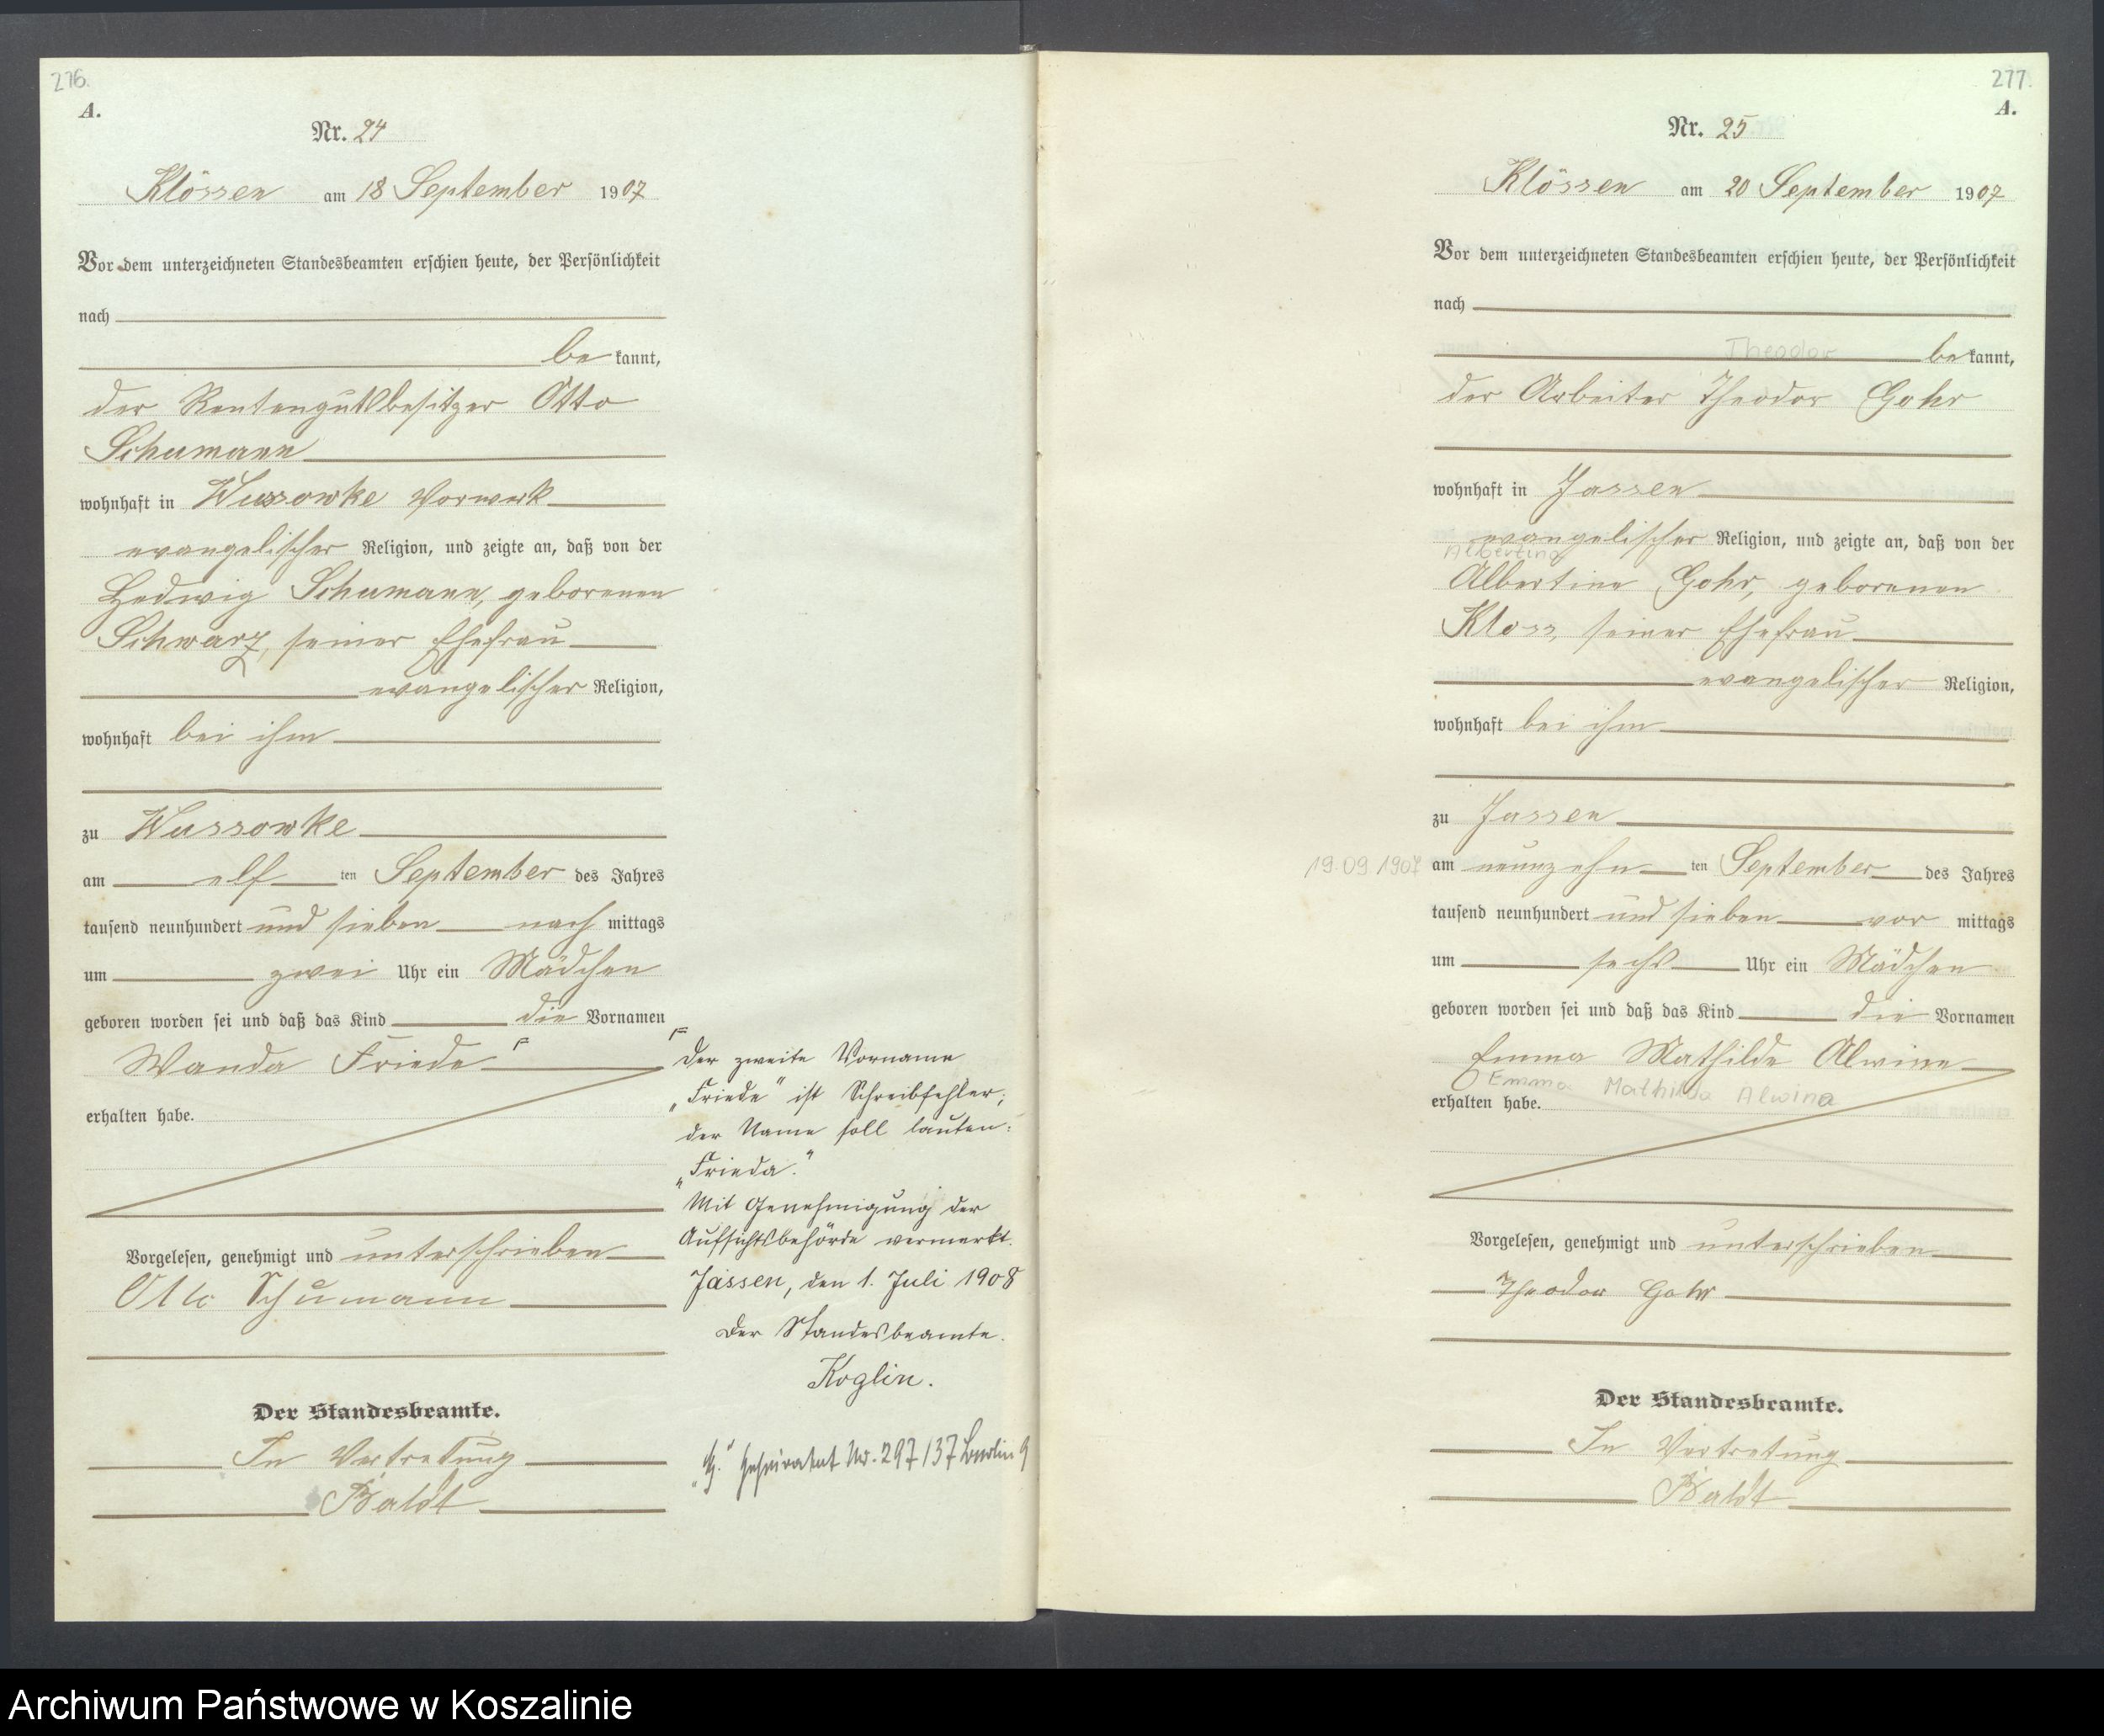 276.
A.
Nr. 24
Klössen am 18 September 1907
Vor dem unterzeichneten Standesbeamten erschien heute, der Persönlichkeit
nach
be kannt,
der Rentengutsbesitzer Otto
Schumann
wohnhaft in Wussowke Vorwerk
evangelischer Religion, und zeigte an, daß von der
Hedwig Schumann, geborenen
Schwarz, seiner Ehefrau
evangelischer Religion,
wohnhaft bei ihm
zu Wussowke
am elf ten September des Jahres
tausend neunhundert und sieben nach mittags
um zwei Uhr ein Mädchen
geboren worden sei und daß das Kind die Vornamen
Wanda Friede
erhalten habe.
Vorgelesen, genehmigt und unterschrieben
Otto Schumann
Der Standesbeamte.
In Vertretung
Baldt
Der zweite Vorname
„Friede" ist Schreibfehler;
der Name soll lauten:
„Frieda."
Mit Genehmigung der
Aufsichtsbehörde vermerkt.
Jassen, den 1. Juli 1908
Der Standesbeamte.
Koglin.
Geheiratet Nr. 297/37 Berlin 9
277.
A.
Nr. 25
Klössen am 20 September 1907
Vor dem unterzeichneten Standesbeamten erschien heute, der Persönlichkeit
nach
Theodor be kannt,
der Arbeiter Theodor Gohr
wohnhaft in Jassen
evangelischer Religion, und zeigte an, daß von der
Albertina
Albertine Gohr, geborenen
Kloss, seiner Ehefrau
evangelischer Religion,
wohnhaft bei ihm
zu Jassen
19.09.1907 am neunzehn ten September des Jahres
tausend neunhundert und sieben vor mittags
um sechs Uhr ein Mädchen
geboren worden sei und daß das Kind die Vornamen
Emma Mathilde Alwine
Emma Mathilda Alwina
erhalten habe.
Vorgelesen, genehmigt und unterschrieben
Theodor Gohr
Der Standesbeamte.
In Vertretung
Baldt
Archiwum Państwowe w Koszalinie